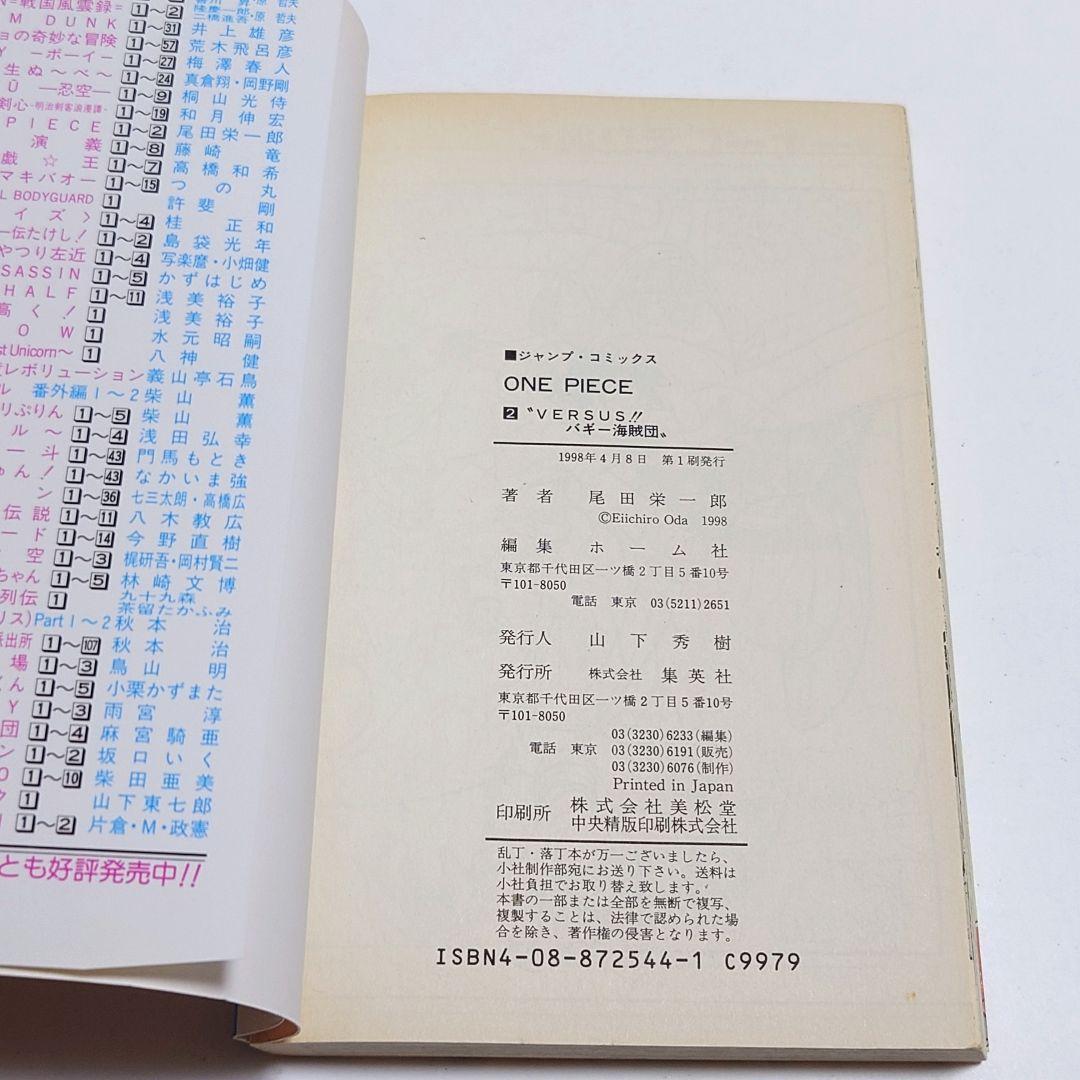 N=戦国風雲録= 1~2 隆慶一郎・原 哲夫
二橋進吾
M DUNK 1~31 井上雄彦
ョの奇妙な冒険 1~57 荒木飛呂彦
Y -ボーイ- 1~27 梅澤春人
生ぬ~べ~ 1~24 真倉翔・岡野剛
Ū ―忍空― 1~9 桐山光侍
剣心-明治剣客浪漫譚- 1~19 和月伸宏
PIECE 1~2 尾田栄一郎
演義 1~8 藤崎 竜
戯☆王 1~7 高橋和希
マキバオー 1~15 つの丸
L BODYGUARD 1 許斐 剛
イズ〉 1~4 桂 正和
ー伝たけし! 1~2 島袋光年
やつり左近 1~4 写楽麿・小畑健
SASSIN 1~5 かずはじめ
HALF 1~11 浅美裕子
高く! 1 浅美裕子
OW 1 水元昭嗣
st Unicorn~ 1 八神 健
レボリューション 義山亭石鳥
ル 番外編1~2 柴山 薫
リぷりん 1~5 柴山 薫
ル~ 1~4 浅田弘幸
一斗 1~43 門馬もとき
ゅん! 1~43 なかいま強
ン 1~36 七三太朗・高橋広
伝説 1~11 八木教広
ード 1~14 今野直樹
空 1~3 梶研吾・岡村賢二
ちゃん 1~5 林崎文博
列伝 1 九十九森
茶留たかふみ
リス)Part1~2 秋本 治
派出所 1~107 秋本 治
場 1~3 鳥山 明
くん 1~5 小栗かずまた
Y 1~3 雨宮 淳
団 1~4 麻宮騎亜
ン 1~2 坂口いく
O 1~10 柴田亜美
ク 1 山下東七郎
1~2 片倉・M・政憲
とも好評発売中!!
■ジャンプ・コミックス
ONE PIECE
2 〝VERSUS!!
バギー海賊団〟
1998年4月8日 第1刷発行
著者 尾田栄一郎
©Eiichiro Oda 1998
編集 ホーム社
東京都千代田区一ツ橋2丁目5番10号
〒101-8050
電話 東京 03(5211)2651
発行人 山下秀樹
発行所 株式会社 集英社
東京都千代田区一ツ橋2丁目5番10号
〒101-8050
03(3230)6233(編集)
電話 東京 03(3230)6191(販売)
03(3230)6076(制作)
Printed in Japan
印刷所 株式会社美松堂
中央精版印刷株式会社
乱丁・落丁本が万一ございましたら、
小社制作部宛にお送り下さい。送料は
小社負担でお取り替え致します。
本書の一部または全部を無断で複写、
複製することは、法律で認められた場
合を除き、著作権の侵害となります。
ISBN4-08-872544-1 C9979